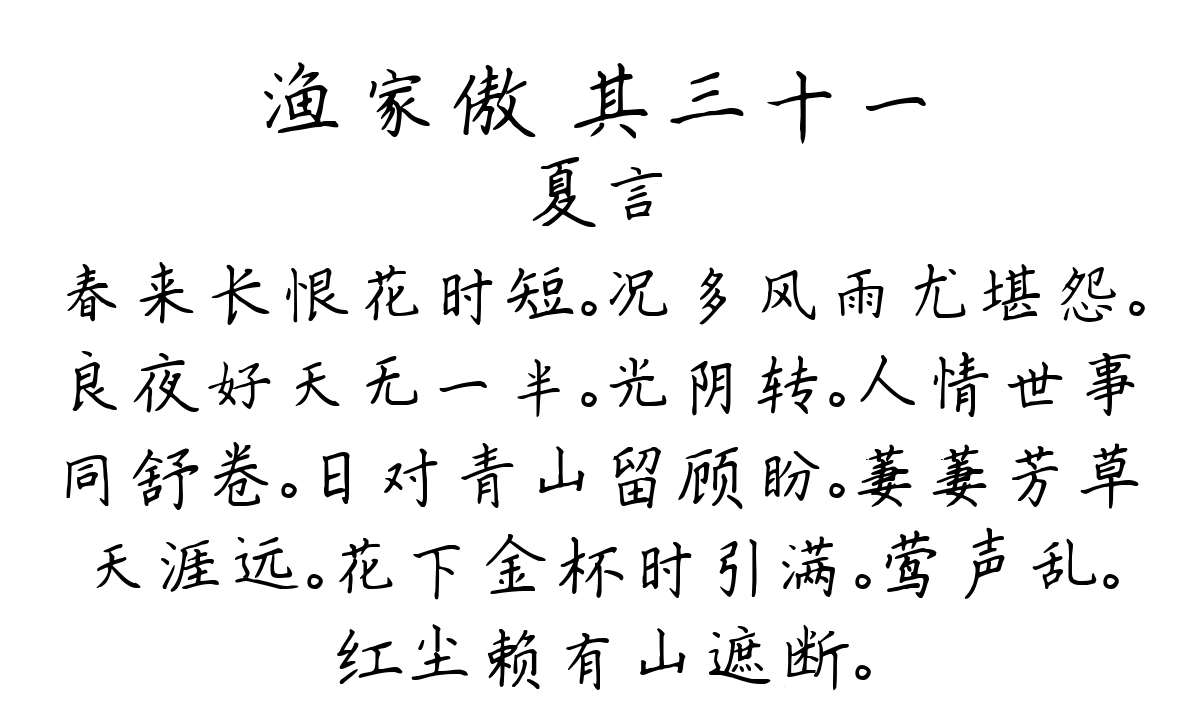 渔家傲 其三十一
夏言
春来长恨花时短。况多风雨尤堪怨。
良夜好天无一半。光阴转。人情世事
同舒卷。日对青山留顾盼。萋萋芳草
天涯远。花下金杯时引满。莺声乱。
红尘赖有山遮断。